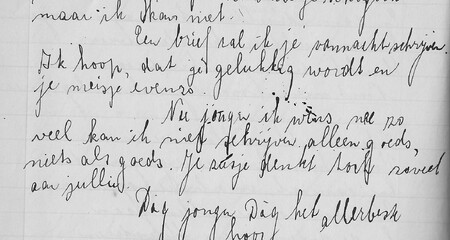 maar ik kan niet.
Een brief zal ik je vannacht schrijven.
Ik hoop, dat gij gelukkig wordt en
je meisje evenzo.
Nu jongen ik wens nee zo
veel kan ik niet schrijven alleen goeds,
niets als goeds. Je zusje denkt toch zoveel
aan jullie.
Dag jongen Dag het allerbeste
hoor